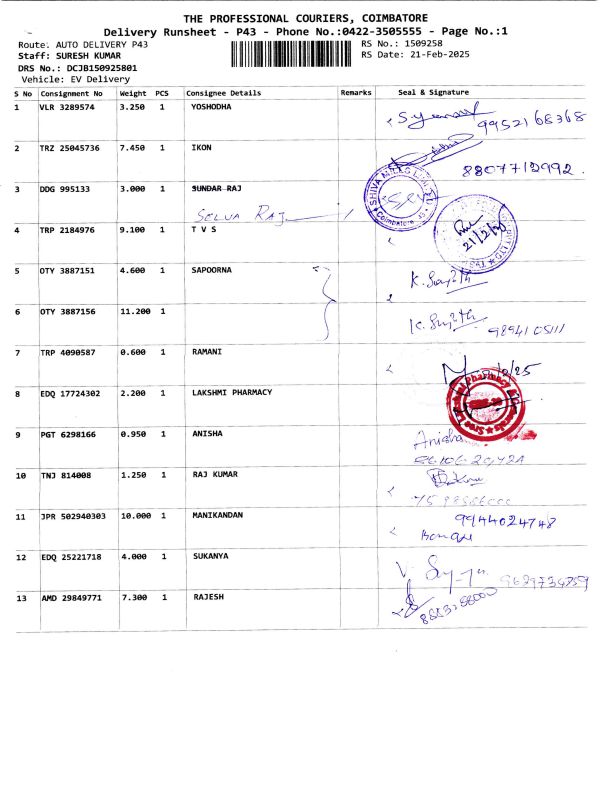 THE PROFESSIONAL COURIERS, COIMBATORE
Delivery Runsheet - P43 - Phone No.:0422-3505555 - Page No.:1
Route: AUTO DELIVERY P43
RS No.: 1509258
Staff: SURESH KUMAR
RS Date: 21-Feb-2025
DRS No.: DCJB150925801
Vehicle: EV Delivery
S No Consignment No Weight PCS Consignee Details Remarks Seal & Signature
1 VLR 3289574 3.250 1 YOSHODHA
9952168368
2 TRZ 25045736 7.450 1 IKON
8807712992.
3 DDG 995133 3.000 1 SUNDAR RAJ
SELVA RAJ
SHIVA
Coimbatore
4 TRP 2184976 9.100 1 T V S
21/2/25
5 OTY 3887151 4.600 1 SAPOORNA
6 OTY 3887156 11.200 1
7 TRP 4090587 0.600 1 RAMANI
8 EDQ 17724302 2.200 1 LAKSHMI PHARMACY
Pharmacy
9 PGT 6298166 0.950 1 ANISHA
Anisha
10 TNJ 814008 1.250 1 RAJ KUMAR
11 JPR 502940303 10.000 1 MANIKANDAN
9944024748
12 EDQ 25221718 4.000 1 SUKANYA
13 AMD 29849771 7.300 1 RAJESH